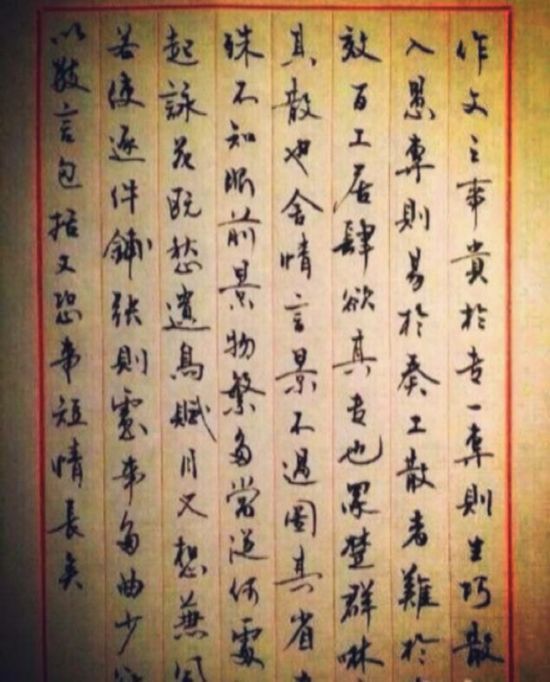 作文之事貴於专一專則生巧散
入愚專則易於奏工散者難於
效百工居肆欲其专也眾楚群咻
其散也舍情言景不過圖其省
殊不知眼前景物繁多當從何處
起詠花既愁遺鳥賦月又想兼風
若使逐件鋪張則慮事多曲少
以数言包括又恐事短情長矣